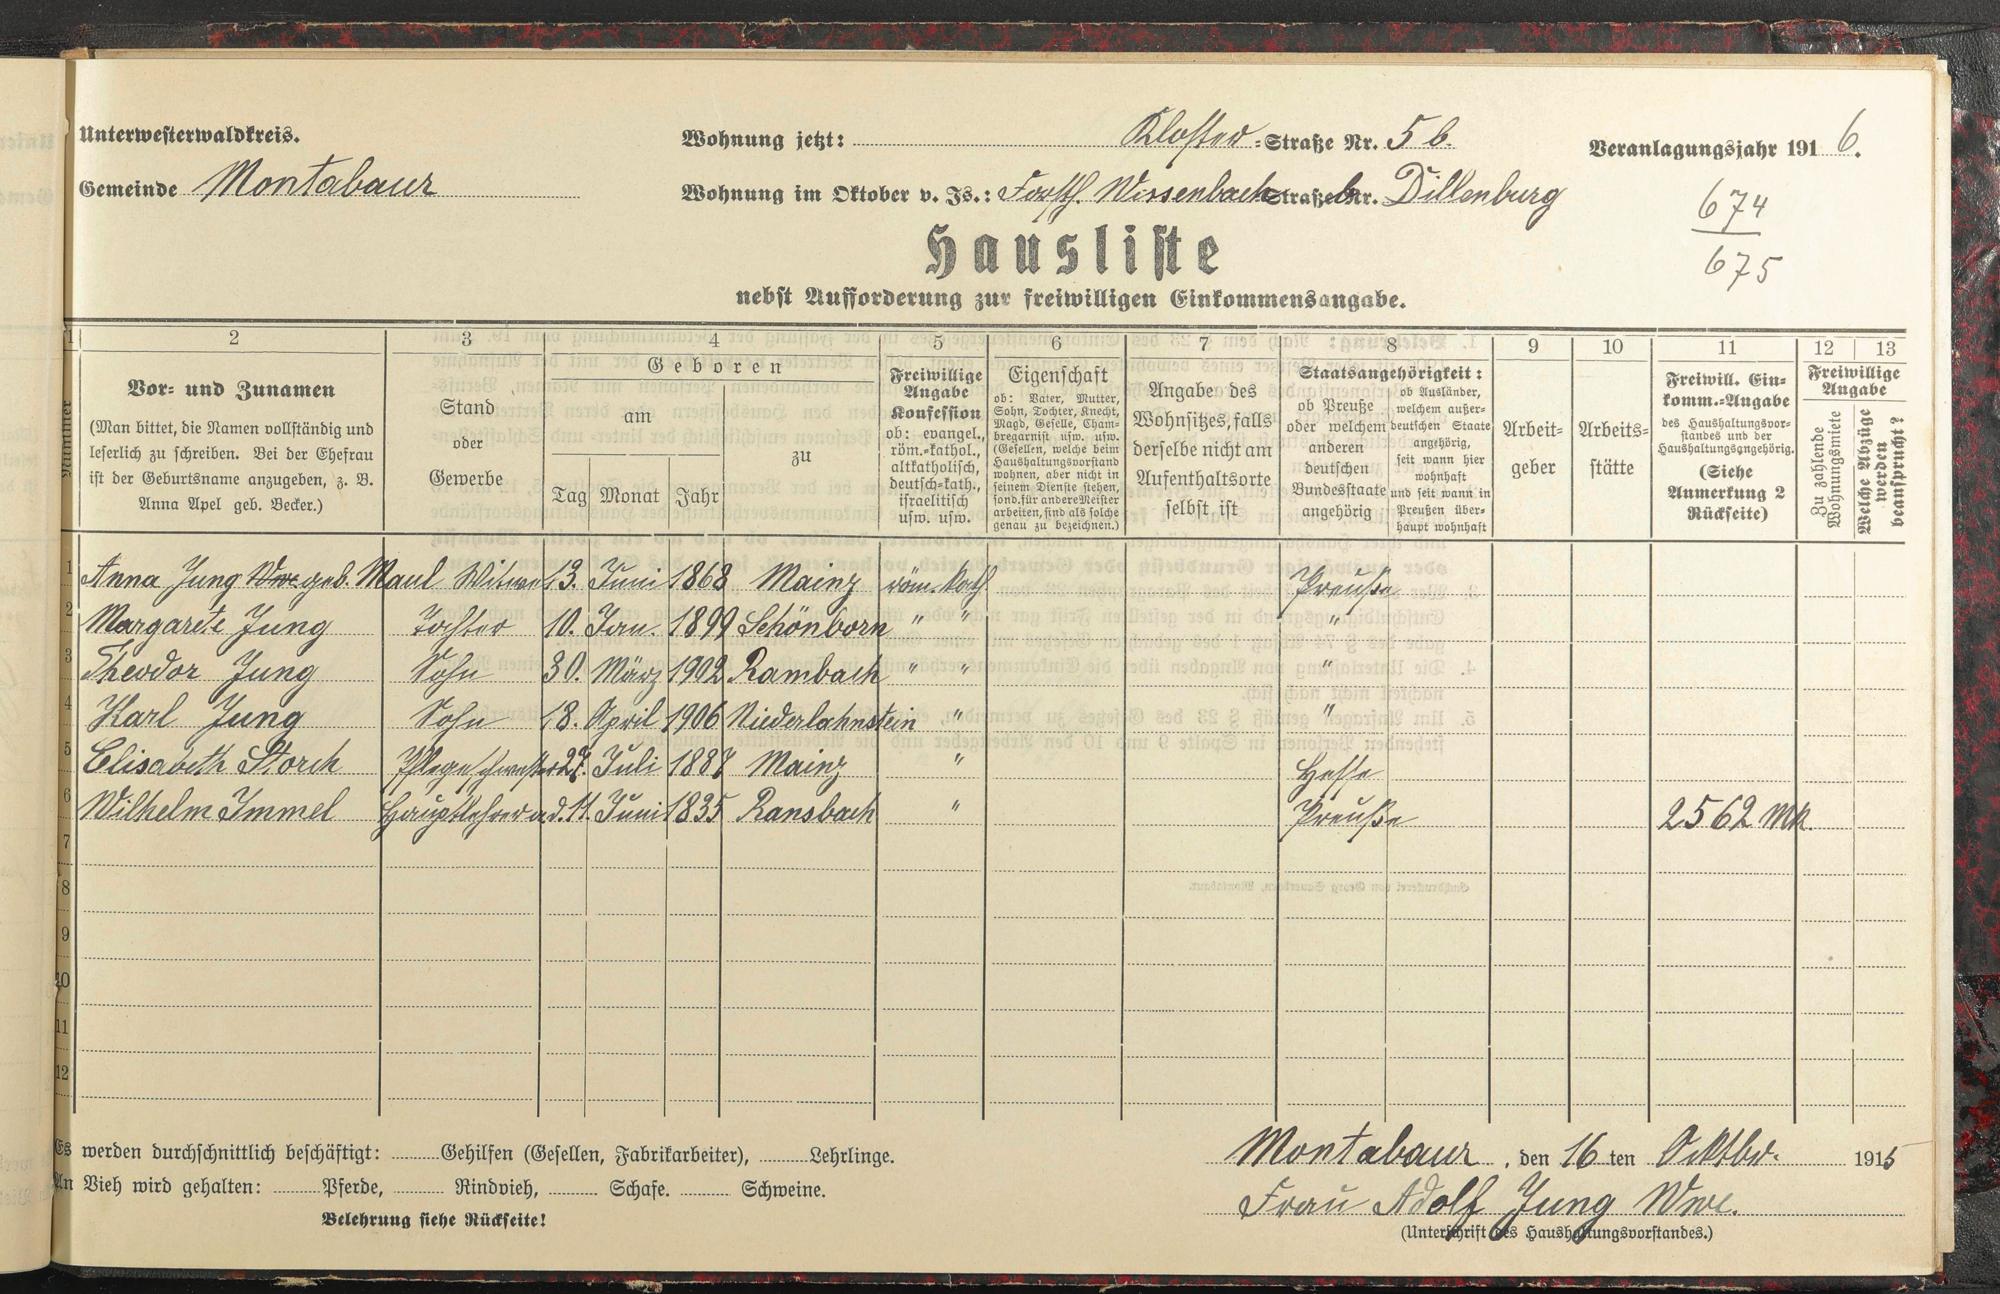 Unterwesterwaldkreis.
Wohnung jetzt: Kloster-Straße Nr. 5 b.
Veranlagungsjahr 1916.
Gemeinde Montabaur
Wohnung im Oktober v. Js.: Forsth. Wissenbach Straße Nr. b. Dillenburg
674
675
Hausliste
nebst Aufforderung zur freiwilligen Einkommensangabe.
1 2 3 4 5 6 7 8 9 10 11 12 13
Nummer
Vor- und Zunamen
(Man bittet, die Namen vollständig und
leserlich zu schreiben. Bei der Ehefrau
ist der Geburtsname anzugeben, z. B.
Anna Apel geb. Becker.)
Stand
oder
Gewerbe
Geboren
am
Tag Monat Jahr
zu
Freiwillige
Angabe
Konfession
ob: evangel.,
röm.-kathol.,
altkatholisch,
deutsch-kath.,
israelitisch
usw. usw.
Eigenschaft
ob: Vater, Mutter,
Sohn, Tochter, Knecht,
Magd, Geselle, Cham-
bregarnist usw. usw.
(Gesellen, welche beim
Haushaltungsvorstand
wohnen, aber nicht in
seinem Dienste stehen,
sond. für andere Meister
arbeiten, sind als solche
genau zu bezeichnen.)
Angabe des
Wohnsitzes, falls
derselbe nicht am
Aufenthaltsorte
selbst ist
Staatsangehörigkeit:
ob Preuße
oder welchem
anderen
deutschen
Bundesstaate
angehörig
ob Ausländer,
welchem außer-
deutschen Staate
angehörig,
seit wann hier
wohnhaft
und seit wann in
Preußen über-
haupt wohnhaft
Arbeit-
geber
Arbeits-
stätte
Freiwill. Ein-
komm.-Angabe
des Haushaltungsvor-
standes und der
Haushaltungsangehörig.
(Siehe
Anmerkung 2
Rückseite)
Freiwillige
Angabe
Zu zahlende
Wohnungsmiete
Welche Abzüge
werden
beansprucht?
1 Anna Jung Wwe geb. Maul Witwe 13. Juni 1868 Mainz röm. kath. Preuße
2 Margarete Jung Tochter 10. Jan. 1899 Schönborn " " "
3 Theodor Jung Sohn 30. März 1902 Rambach " " "
4 Karl Jung Sohn 18. April 1906 Niederlahnstein " "
5 Elisabeth Storch Pflegeschwester 27. Juli 1887 Mainz " Hesse
6 Wilhelm Immel Hauptlehrer a.d. 11. Juni 1835 Ransbach " Preuße 2562 Mk.
7
8
9
10
11
12
Es werden durchschnittlich beschäftigt: Gehilfen (Gesellen, Fabrikarbeiter), Lehrlinge.
An Vieh wird gehalten: Pferde, Rindvieh, Schafe. Schweine.
Belehrung siehe Rückseite!
Montabaur, den 16 ten Oktbr. 1915
Frau Adolf Jung Wwe.
(Unterschrift des Haushaltungsvorstandes.)